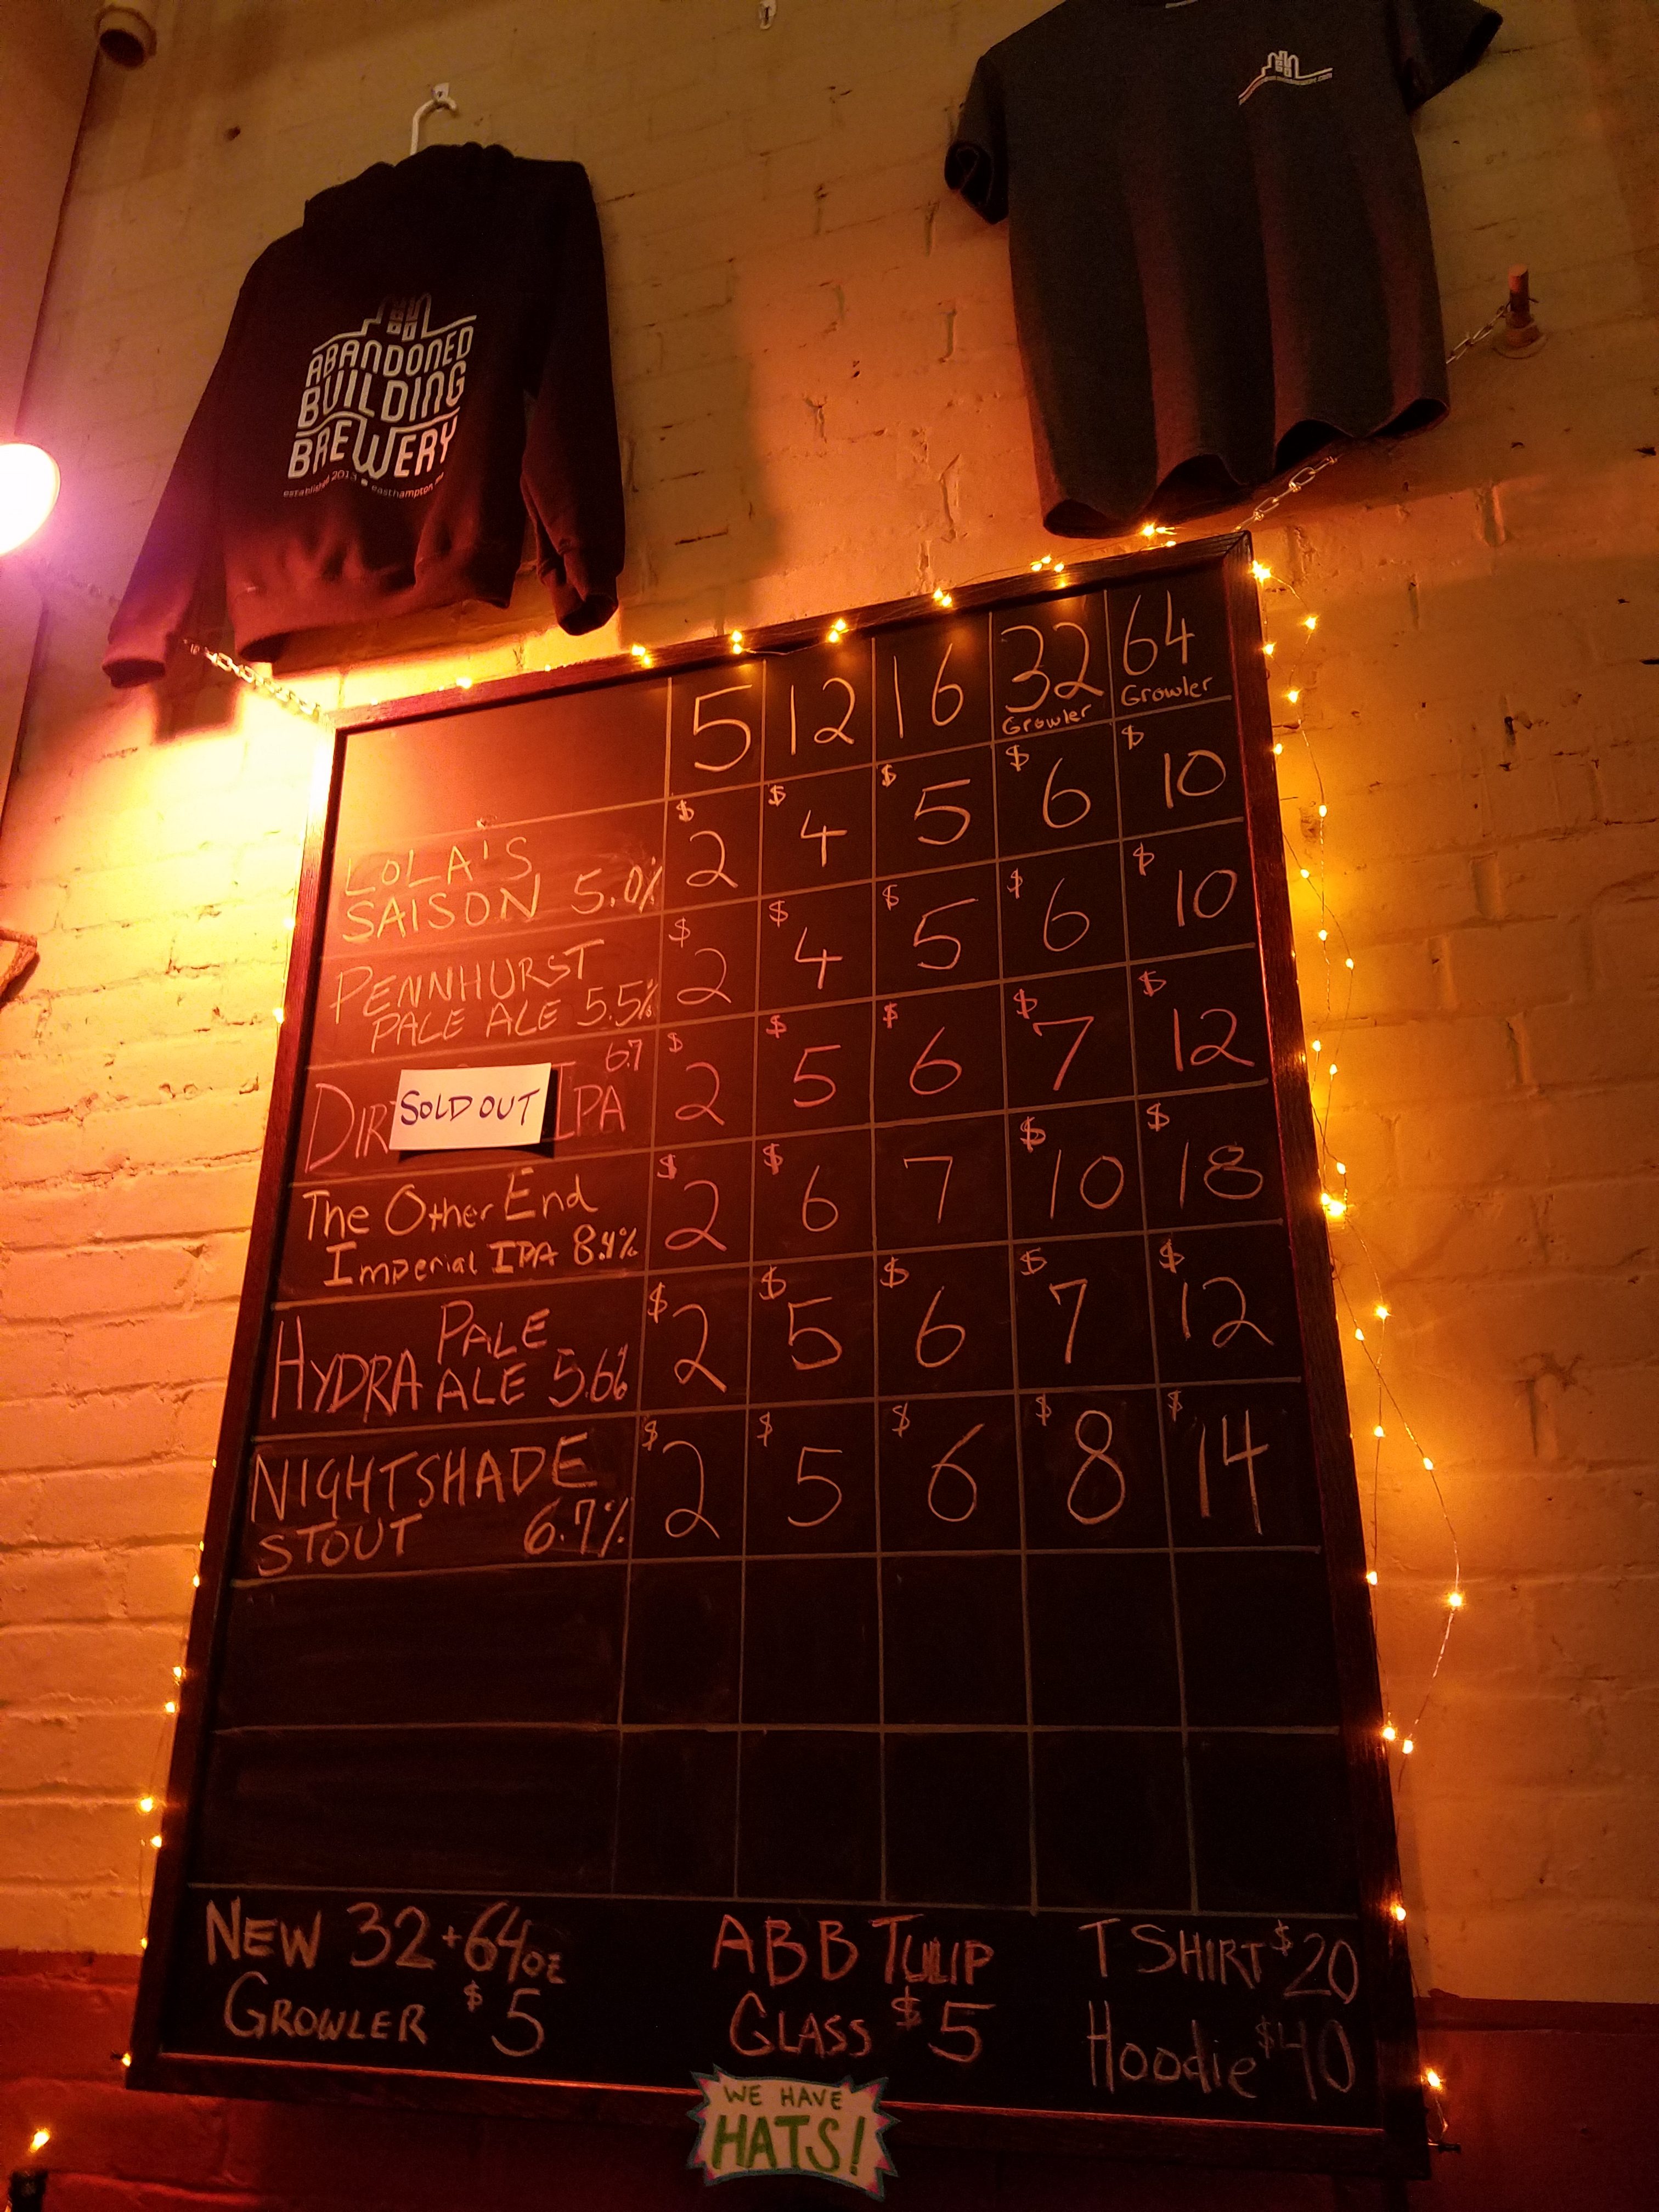 ABANDONED
BUILDING
BREWERY
established 2013 • easthampton, ma
5 12 16 32 64
Growler Growler
LOLA'S
SAISON 5.0% $2 $4 $5 $6 $10
PENNHURST
PALE ALE 5.5% $2 $4 $5 $6 $10
6.7
SOLD OUT
IPA $2 $5 $6 $7 $12
The Other End
Imperial IPA 8.4% $2 $6 7 $10 $18
HYDRA PALE
ALE 5.6% $2 $5 $6 $7 $12
NIGHTSHADE
STOUT 6.7% $2 $5 $6 $8 $14
NEW 32+64oz
GROWLER $5
ABB TULIP
GLASS $5
T SHIRT $20
Hoodie $40
WE HAVE
HATS!